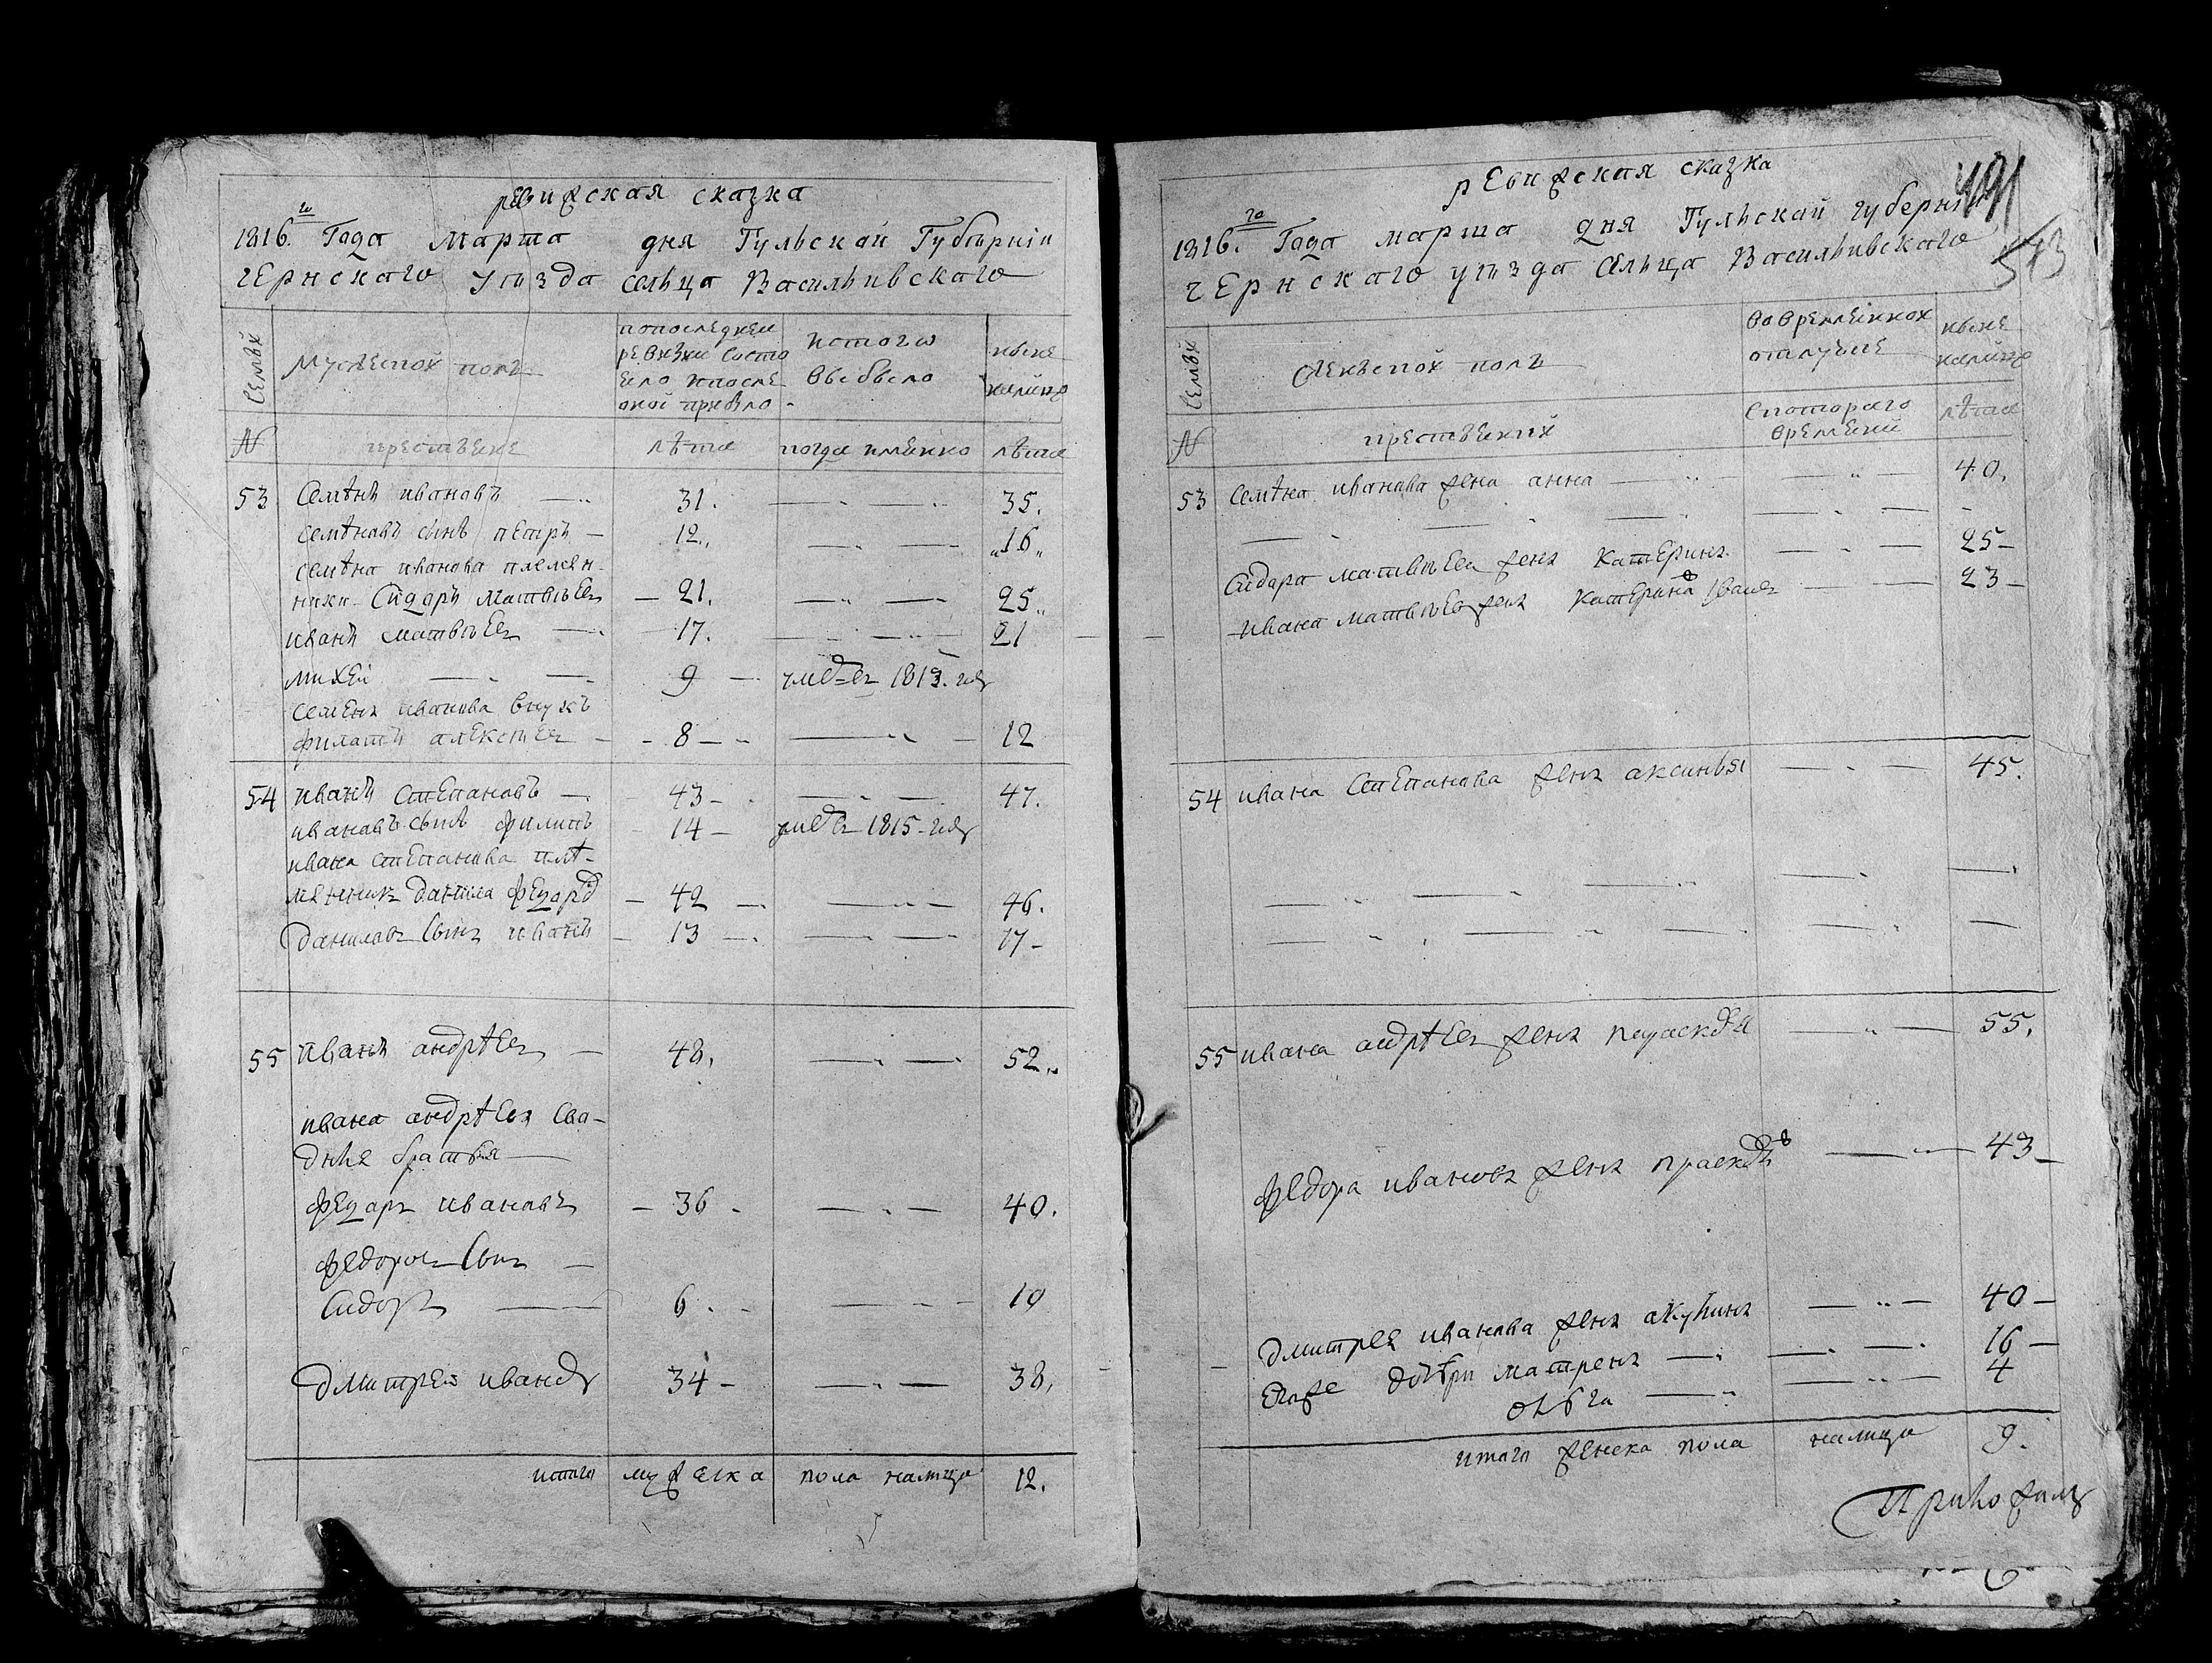 ревиżская сказка
1816.го Года Марта дня Тульской Губѣрніи
чернскаго уѣзда селца Васильивскаго
Семьи
Мужескои полъ
попоследнеи
ревизии состо
ело ипосле
оной прибло
истого
выбыло
ныне
налицо
№
крестьяне
лѣта
когда имянно
лѣта
53 Семѣнъ ивановъ 31. 35.
семѣновъ сынъ петръ 12. 16
семѣна иванова племян-
ники Сидаръ матвѣев 21. 25
иванъ матвѣев 17. 21
михеи 9 умер 1813. году
семена иванова внукъ
филатъ алексѣев 8 12
54 иванъ степановъ 43 47.
ивановъ сынъ филипъ 14 умер 1815 году
ивана степанова плѣ-
мянник данила федоро 42 46.
данилов сынъ иванъ 13 17
55 иванъ андрѣев 48. 52
ивана андрѣева сво-
дныя братья
федаръ ивановъ 36 40.
федоров сынъ
Сидоръ 6 10
дмитреи иванов 34 38.
итого мужеска пола налицо 12.
ревиżская сказка
491
1816.го Года марта дня Тульской губерніи
чернскаго уѣзда селца Васильивскаго
573
Семьи
женскои полъ
во временнои
отлучке
ныне
налицо
№
крестьянки
скотораго
времени
лѣта
53 семѣна иванова жена анна 40.
Сидара матвѣева жена катерина 25
ивана матвѣева жена катерина 23
54 ивана степанова жена аксинья 45.
55 ивана андрѣев жена параскева 55.
федора иванова жена праскев 43
дмитрея иванова жена акулина 40
егоже дочери матрена 16
ольга 4
итого женска пола налицо 9.